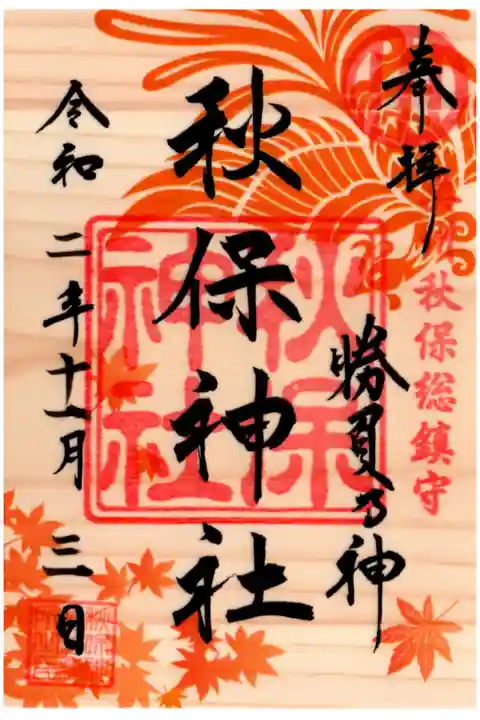 奉拝
秋保総鎮守
勝負乃神
秋保神社
秋保
神社
令和二年十一月三日